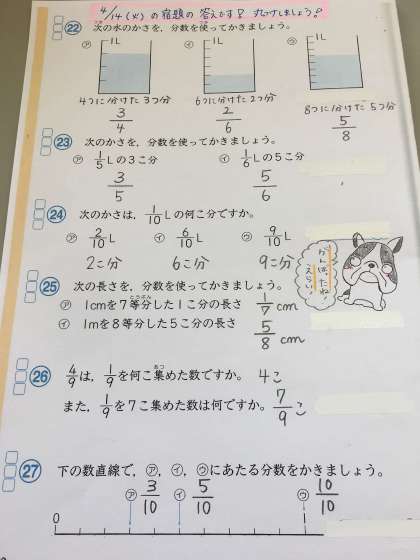 4/14(火)の宿題の答えです! 丸つけしましょう!
22 次の水のかさを,分数を使ってかきましょう。
㋐ 1L ㋑ 1L ㋒ 1L
4つに分けた3つ分 6つに分けた2つ分 8つに分けた5つ分
3/4 2/6 5/8
23 次のかさを,分数を使ってかきましょう。
㋐ 1/5Lの3こ分 ㋑ 1/6Lの5こ分
3/5 5/6
24 次のかさは,1/10Lの何こ分ですか。
㋐ 2/10L ㋑ 6/10L ㋒ 9/10L
2こ分 6こ分 9こ分
がんばったね!
えらい!
25 次の長さを,分数を使ってかきましょう。
㋐ 1cmを7等分した1こ分の長さ 1/7cm
㋑ 1mを8等分した5こ分の長さ 5/8cm
26 4/9は,1/9を何こ集めた数ですか。 4こ
また,1/9を7こ集めた数は何ですか。 7/9こ
27 下の数直線で,㋐,㋑,㋒にあたる分数をかきましょう。
㋐ 3/10 ㋑ 5/10 ㋒ 10/10
0 1